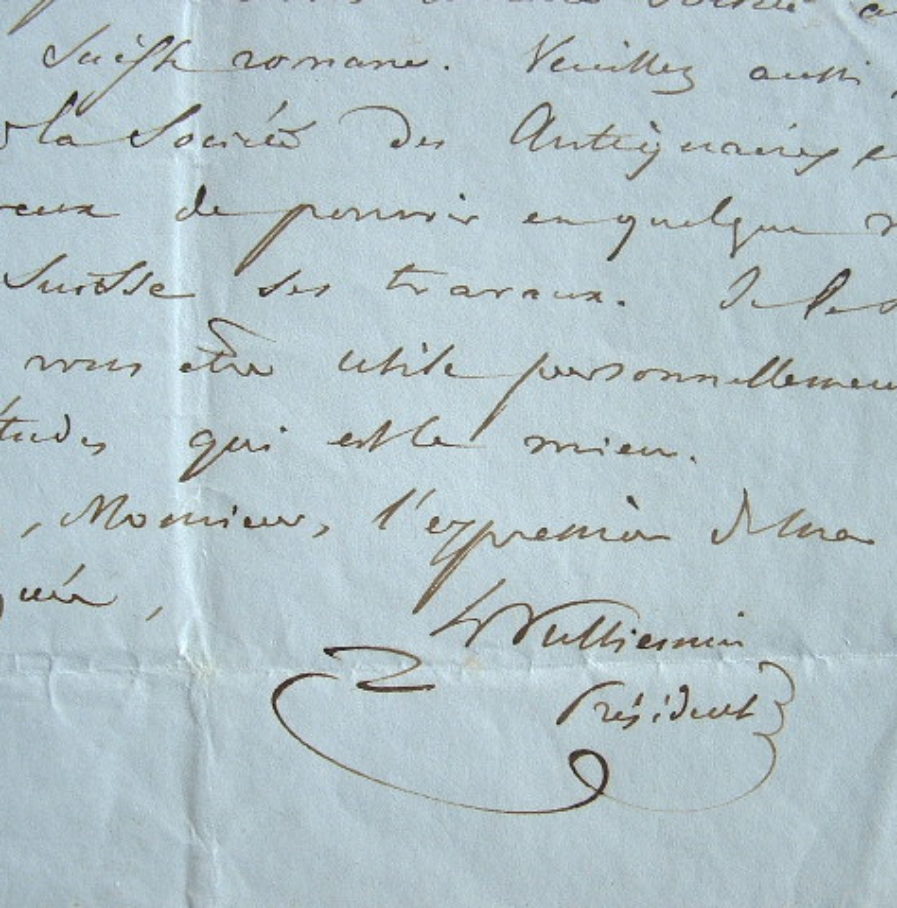 Société
Suisse romane. Veuillez aussi,
la Société des Antiquaires
de pouvoir en quelque
Suisse ses travaux.
vous être utile personnellement
études qui est le mien.
, Monsieur, l'expression de ma
L Vulliemin
Président